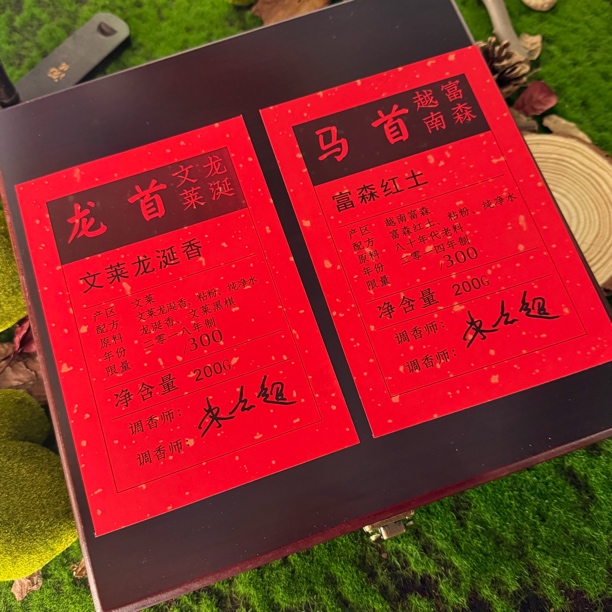 龙首
文莱
龙涎
文莱龙涎香
产区 文莱
配方 文莱龙涎香、粘粉、纯净水
原料 龙涎香、文莱黑棋
年份 二零一八年制
限量 300
净含量 200G
调香师:
调香师:
马首
越南
富森
富森红土
产区 越南富森
配方 富森红土、粘粉、纯净水
原料 八十年代老料
年份 二零一四年制
限量 300
净含量 200G
调香师:
调香师: